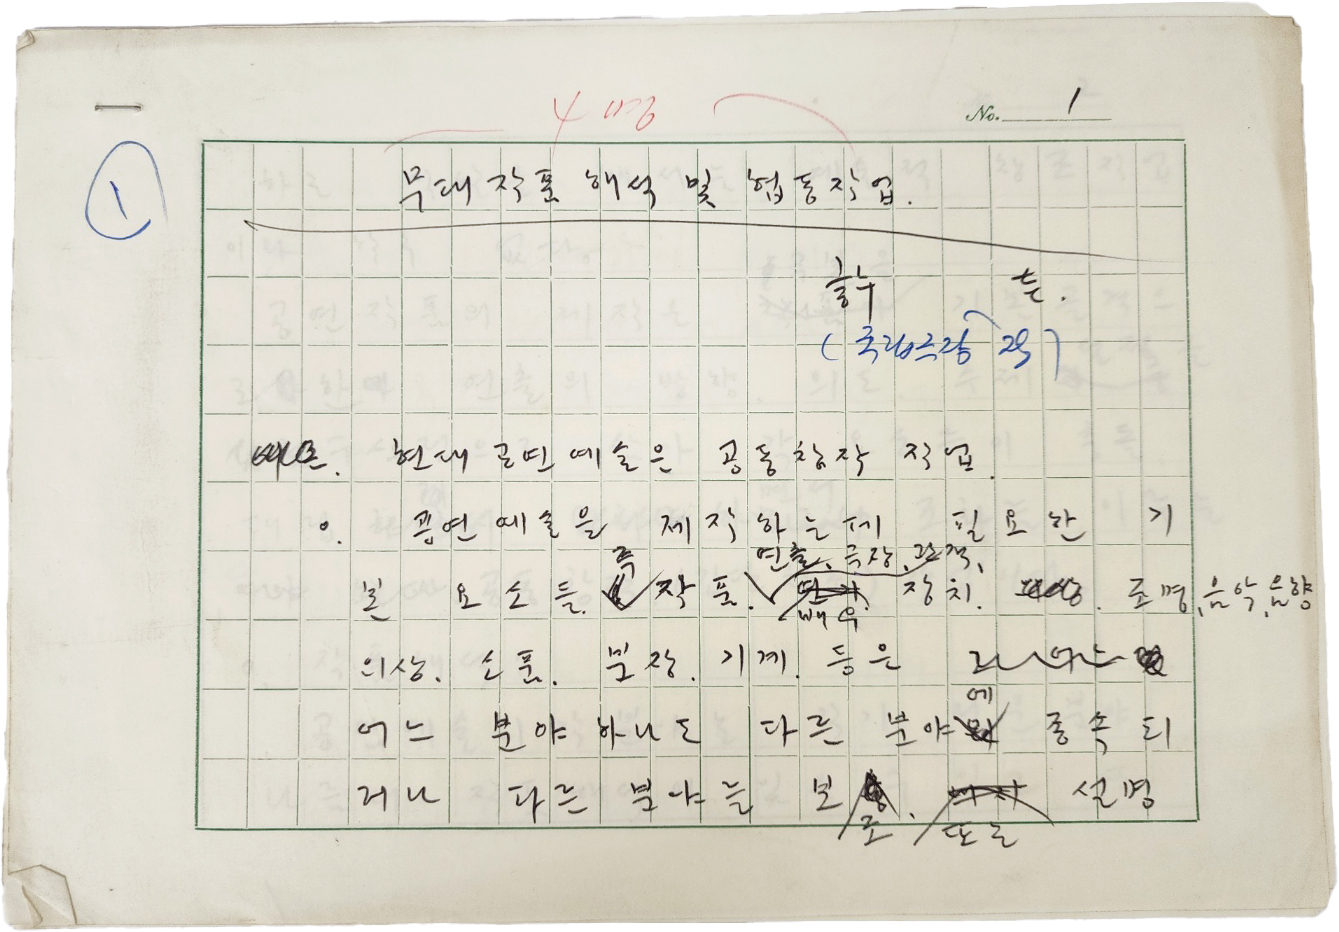 No. 1
1
무대작품 해석 및 협동작업.
(국립극장
현대공연예술은 공동창작 작업
○. 공연예술을 제작하는데 필요한 기
연출, 극장, 관객,
본 요소들. 즉 작품. 장치. 조명, 음악, 음향
배우
의상. 소품. 분장. 기계. 등은
어느 분야하나도 다른 분야에 종속되
거나 다른 분야를 보조. 설명
또는